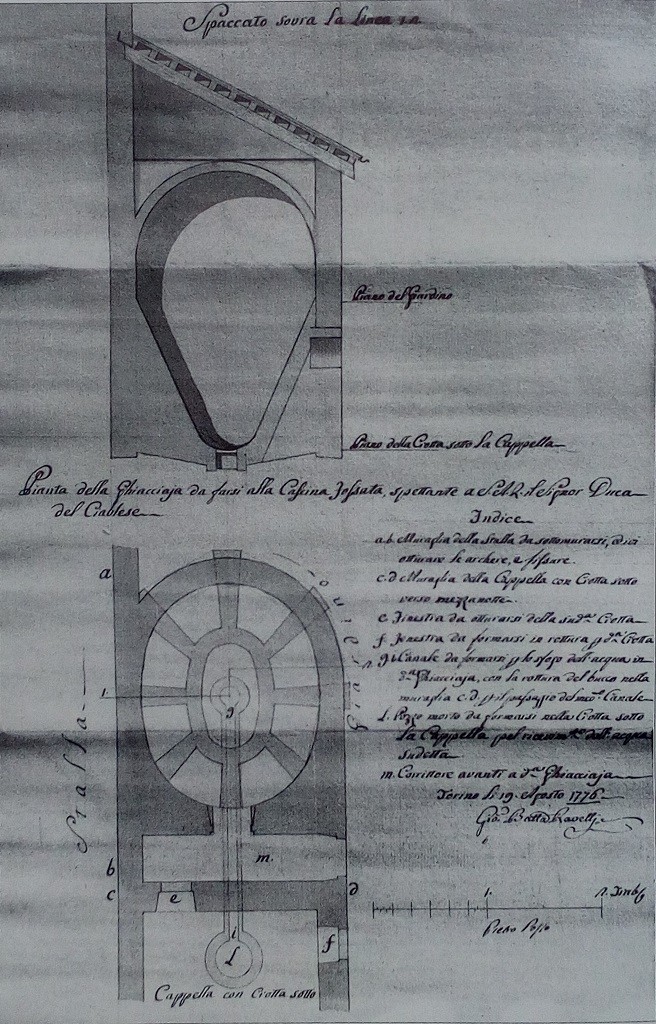 Spaccato sovra la Linea 1.2.
Piano del Giardino
Piano della Crotta sotto la Cappella
Pianta della Ghiacciaja da farsi alla Cascina Josfata, spettante a S.A.R. il Signor Duca
del Ciablese
Indice
a.b. Muraglia della Stalla da sottomurarsi, ed ivi
otturare le archere, e fissure.
c.d. Muraglia della Cappella con Crotta sotto
verso mezzanotte.
e. Finestra da otturarsi della sud.ta Crotta
f. Fenestra da formarsi in rottura p d.ta Crotta
g.i. Canale da formarsi p lo sfogo dell'acqua in
d.ta Ghiacciaja, con la rottura del bucco nella
muraglia c.d. p il passaggio del med.mo Canale
L. Pozzo morto da formarsi nella Crotta sotto
la Cappella pel ricevim.to dell'acqua
sudetta
m. Corrittore avanti a d.ta Ghiacciaja
Torino li 19. Agosto 1776.
Gio. Batta Ravelli
a
Stalla
Giardino
1.
2.
g
b
m.
c
e
d
i
L
f
Cappella con Crotta sotto
1.
2. Trab.
Piedo